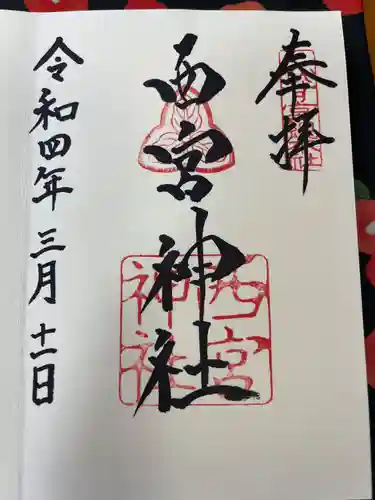 奉拝
西宮神社
西宮神社
令和四年三月十一日